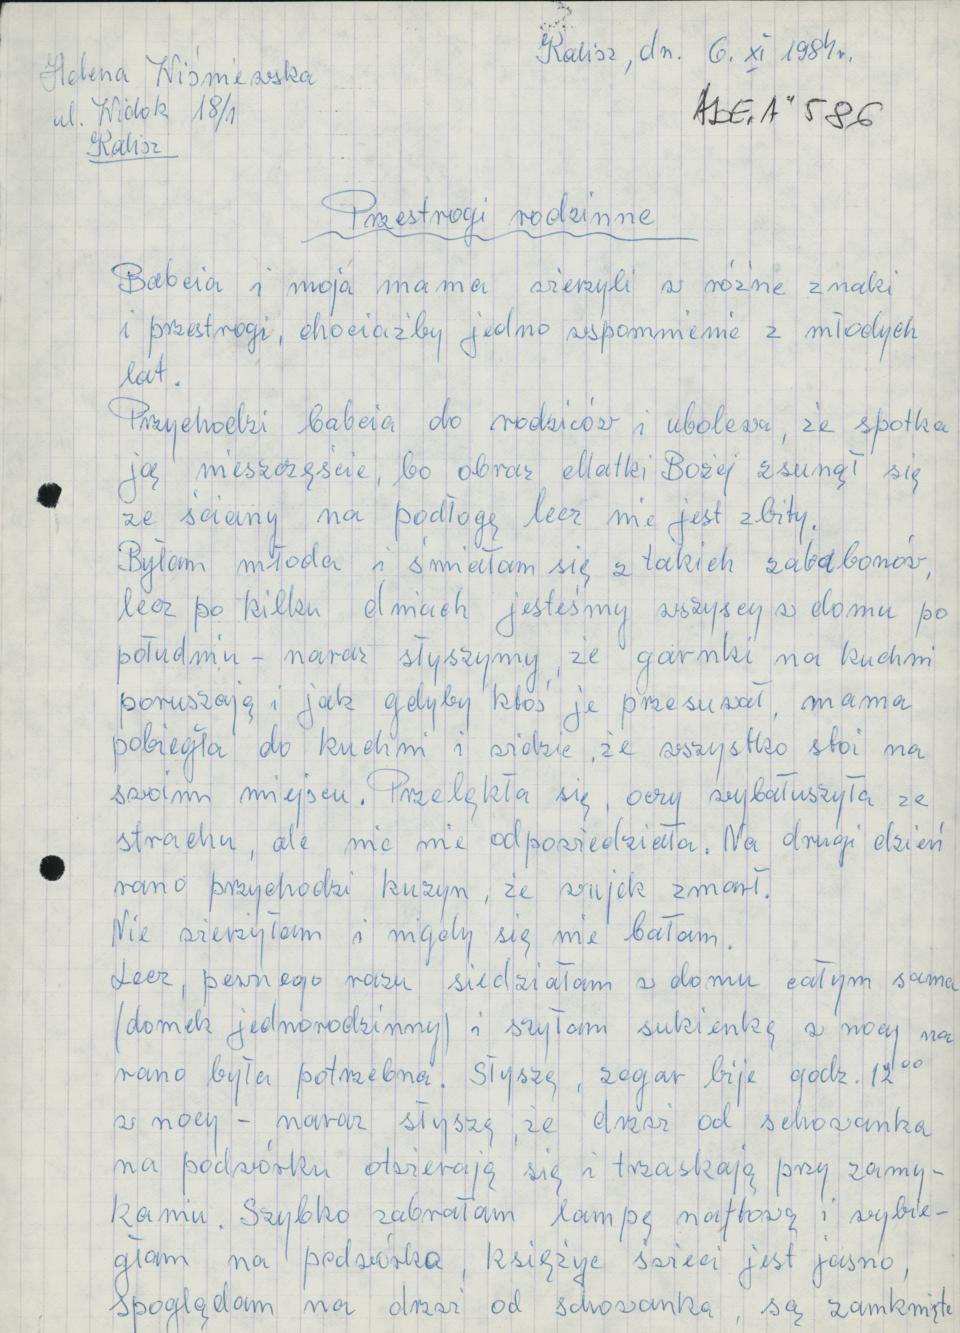 Kalisz, dn. 6. XI 1984r.
Helena Wiśniewska
ul. Widok 18/1
Kalisz
586
Przestrogi rodzinne
Babcia i moja mama wierzyli w różne znaki
i przestrogi, chociażby jedno wspomnienie z młodych
lat.
Przychodzi babcia do rodziców i ubolewa, że spotka
ją nieszczęście, bo obraz Matki Bożej zsunął się
ze ściany na podłogę lecz nie jest zbity.
Byłam młoda i śmiałam się z takich zabobonów,
lecz po kilku dniach jesteśmy wszyscy w domu po
południu - naraz słyszymy, że garnki na kuchni
poruszają i jak gdyby ktoś je przesuwał, mama
pobiegła do kuchni i widzie, że wszystko stoi na
swoim miejscu. Przelękła się, oczy wybałuszyła ze
strachu, ale nic nie odpowiedziała. Na drugi dzień
rano przychodzi kuzyn, że wujek zmarł.
Nie wierzyłam i nigdy się nie bałam.
Lecz, pewnego razu siedziałam w domu całym sama
(domek jednorodzinny) i szyłam sukienkę w nocy na
rano była potrzebna. Słyszę, zegar bije godz. 12⁰⁰
w nocy - naraz słyszę, że drzwi od schowanka
na podwórku otwierają się i trzaskają przy zamy-
kaniu. Szybko zabrałam lampę naftową i wybie-
głam na podwórko, księżyc świeci jest jasno,
spoglądam na drzwi od schowanka, są zamknięte